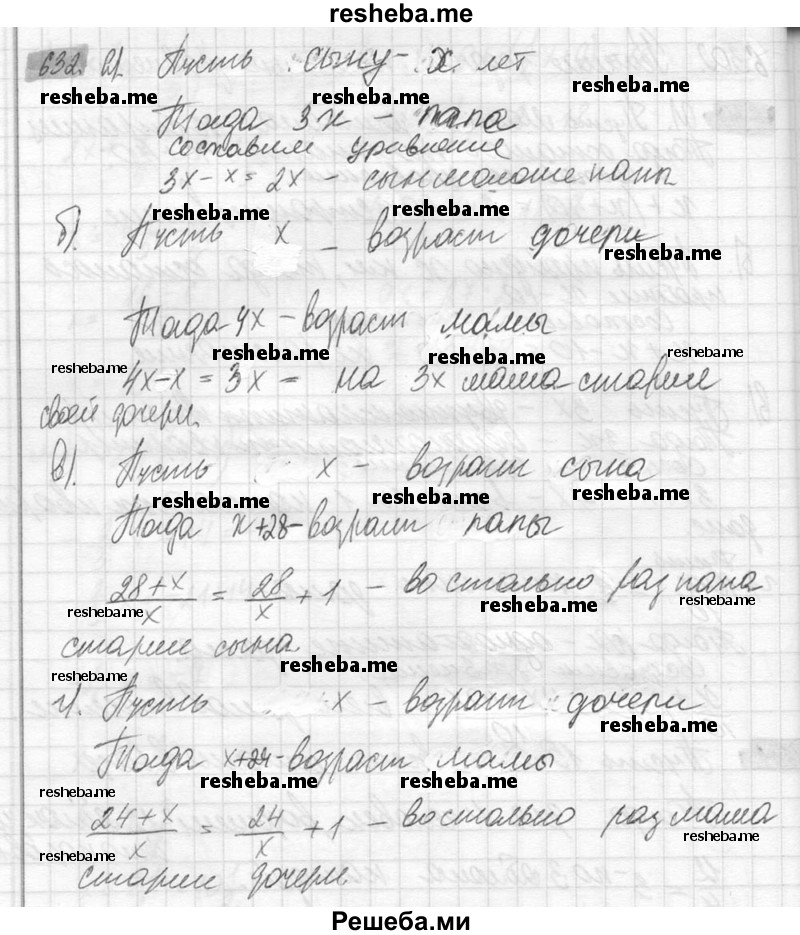 resheba.me
632. а). Пусть сыну - x лет
resheba.me resheba.me resheba.me
Тогда 3x - папа
составим уравнение
3x - x = 2x - сын моложе папы
resheba.me resheba.me
б). Пусть x - возраст дочери
resheba.me
Тогда 4x - возраст мамы
resheba.me resheba.me resheba.me resheba.me
4x - x = 3x - на 3x мама старше
своей дочери.
в). Пусть x - возраст сына
resheba.me resheba.me resheba.me
Тогда x+28 - возраст папы
28+x / x = 28 / x + 1 - во столько раз папа
resheba.me resheba.me resheba.me
старше сына
resheba.me resheba.me
г). Пусть x - возраст дочери
resheba.me
Тогда x+24 - возраст мамы
resheba.me resheba.me resheba.me
24+x / x = 24 / x + 1 - во столько раз мама
resheba.me resheba.me
старше дочери
Решеба.ми